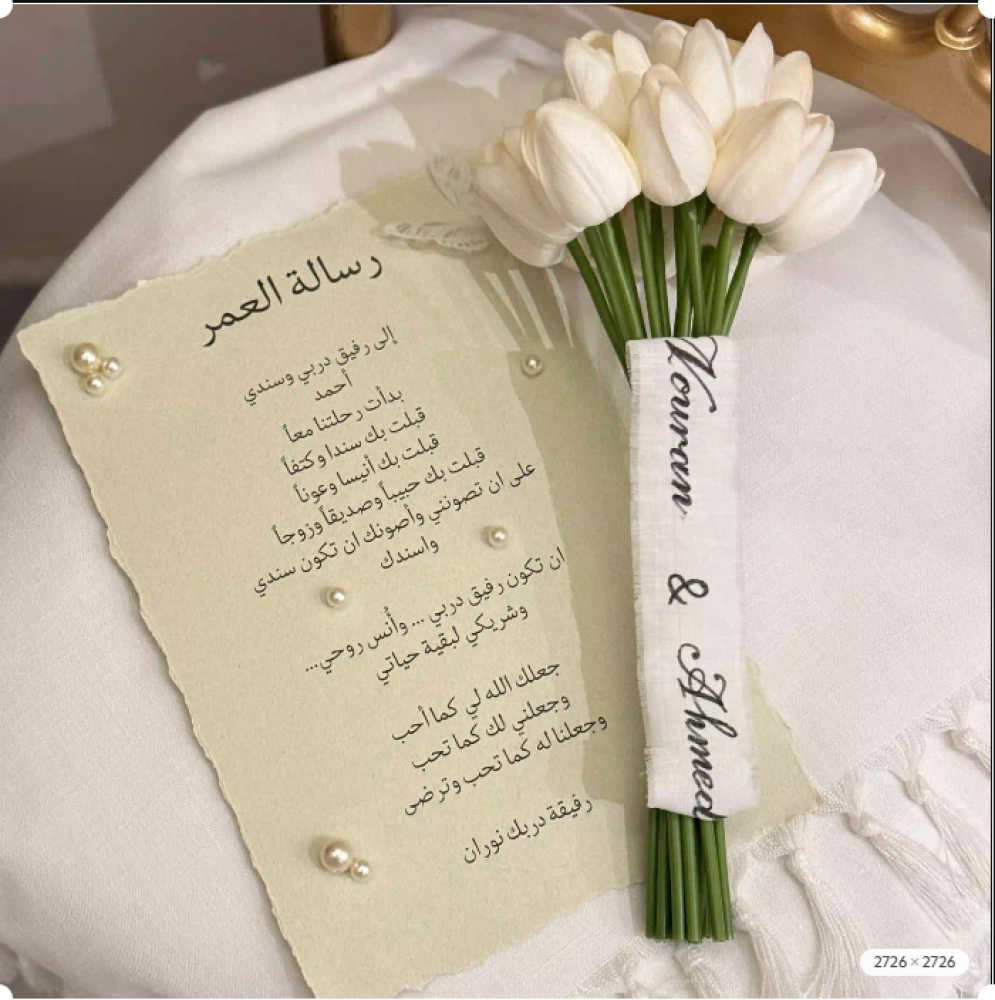 رسالة العمر
إلى رفيق دربي وسندي
أحمد
بدأت رحلتنا معاً
قبلت بك سندا وكتفاً
قبلت بك أنيسا وعوناً
قبلت بك حبيباً وصديقاً وزوجاً
على ان تصونني وأصونك ان تكون سندي
واسندك
ان تكون رفيق دربي ... وأُنس روحي...
وشريكي لبقية حياتي
جعلك الله لي كما أحب
وجعلني لك كما تحب
وجعلنا له كما تحب وترضى
رفيقة دربك نوران
Nouran & Ahmed
2726 × 2726